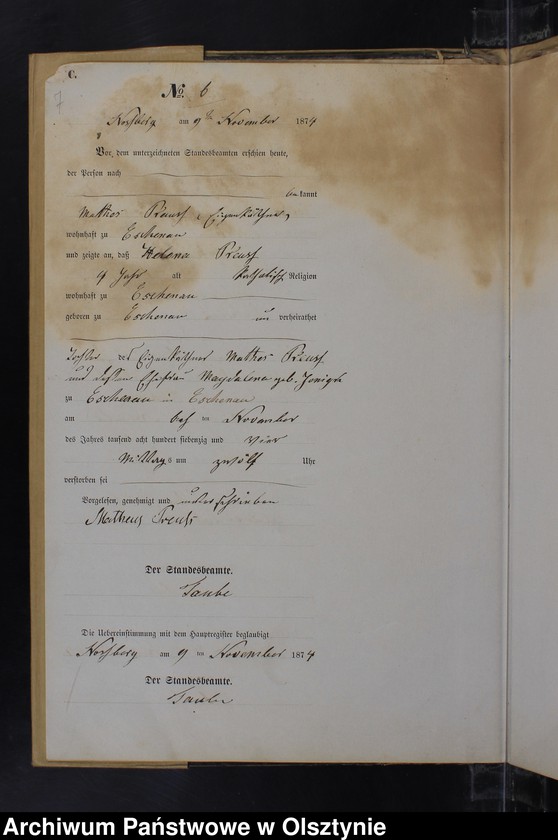 C.
7
No. 6
am 9ten November 1874
Vor dem unterzeichneten Standesbeamten erschien heute,
der Person nach
kannt
Mathes Preuß, Eigenkäthner,
wohnhaft zu Eschenau
und zeigte an, daß Helena Preuß
Jahr alt katholisch Religion
wohnhaft zu Eschenau
geboren zu Eschenau un verheirathet
Tochter des Eigenkäthner Mathes Preuß
und dessen Ehefrau Magdalena geb.
zu Eschenau in Eschenau
am ten November
des Jahres tausend acht hundert siebenzig und vier
Mittags um zwölf Uhr
verstorben sei
Vorgelesen, genehmigt und unterschrieben
Matheus Preuß
Der Standesbeamte.
Taube
Die Uebereinstimmung mit dem Hauptregister beglaubigt
am 9 ten November 1874
Der Standesbeamte.
Taube
Archiwum Państwowe w Olsztynie